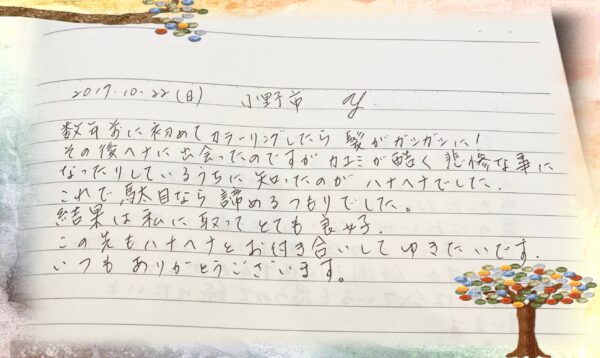 2017.10.22(日) 小野市 Y
数年前に初めてカラーリングしたら髪がガシガシに!
その後ヘナに出会ったのですがカユミが酷く悲惨な事に
なったりしているうちに知ったのがハナヘナでした.
これで駄目なら諦めるつもりでした。
結果は私に取ってとても良好.
この先もハナヘナとお付き合いしてゆきたいです.
いつもありがとうございます。